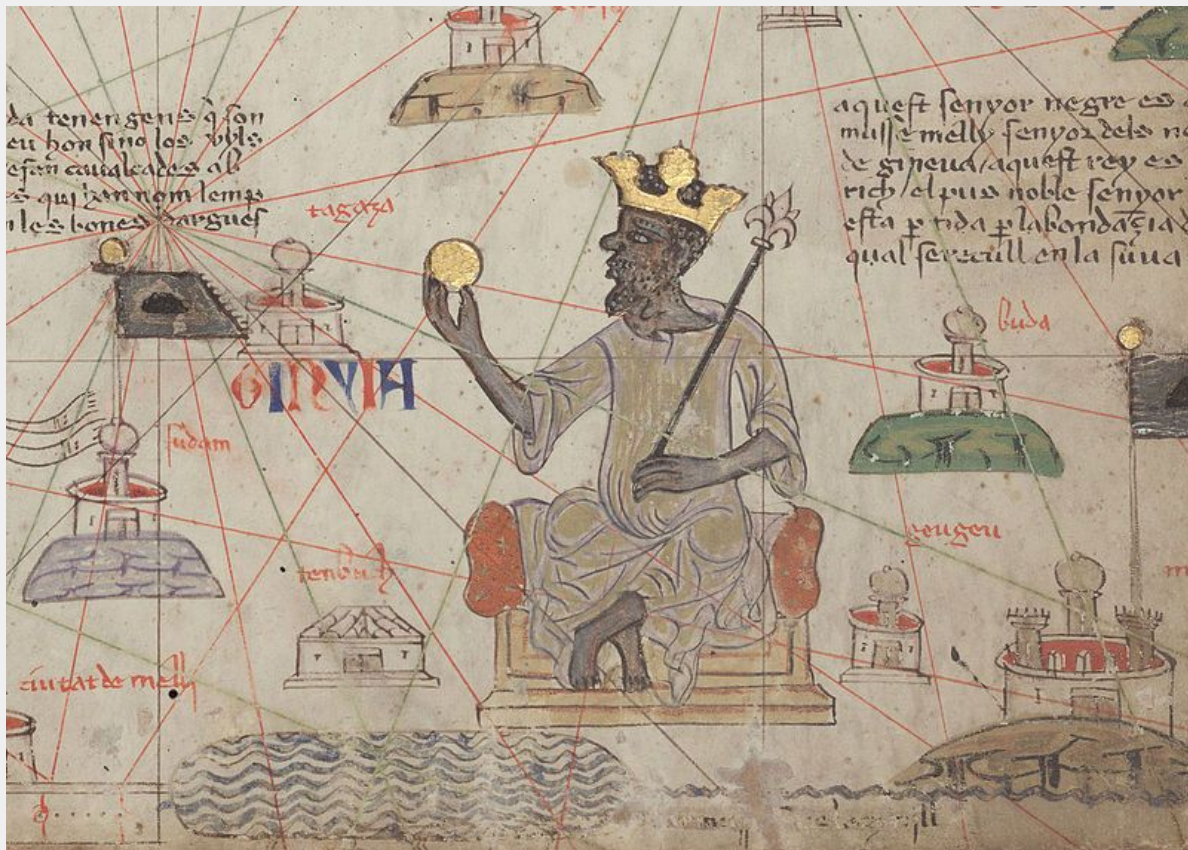 da tenen gens q̃ son
eu hon sino los vyls
e fan caualcades ab
s qui han nom lemp
n les bones dargues
aquest senyor negre es a
musse melly senyor dels ne
de gineua / aquest rey es
rich el pus noble senyor
esta p̱tida p̱ labondãzia d
qual se recull en la suua
tagaza
buda
GINYIA
sudam
geugeu
tenbuch
ciutat de melly